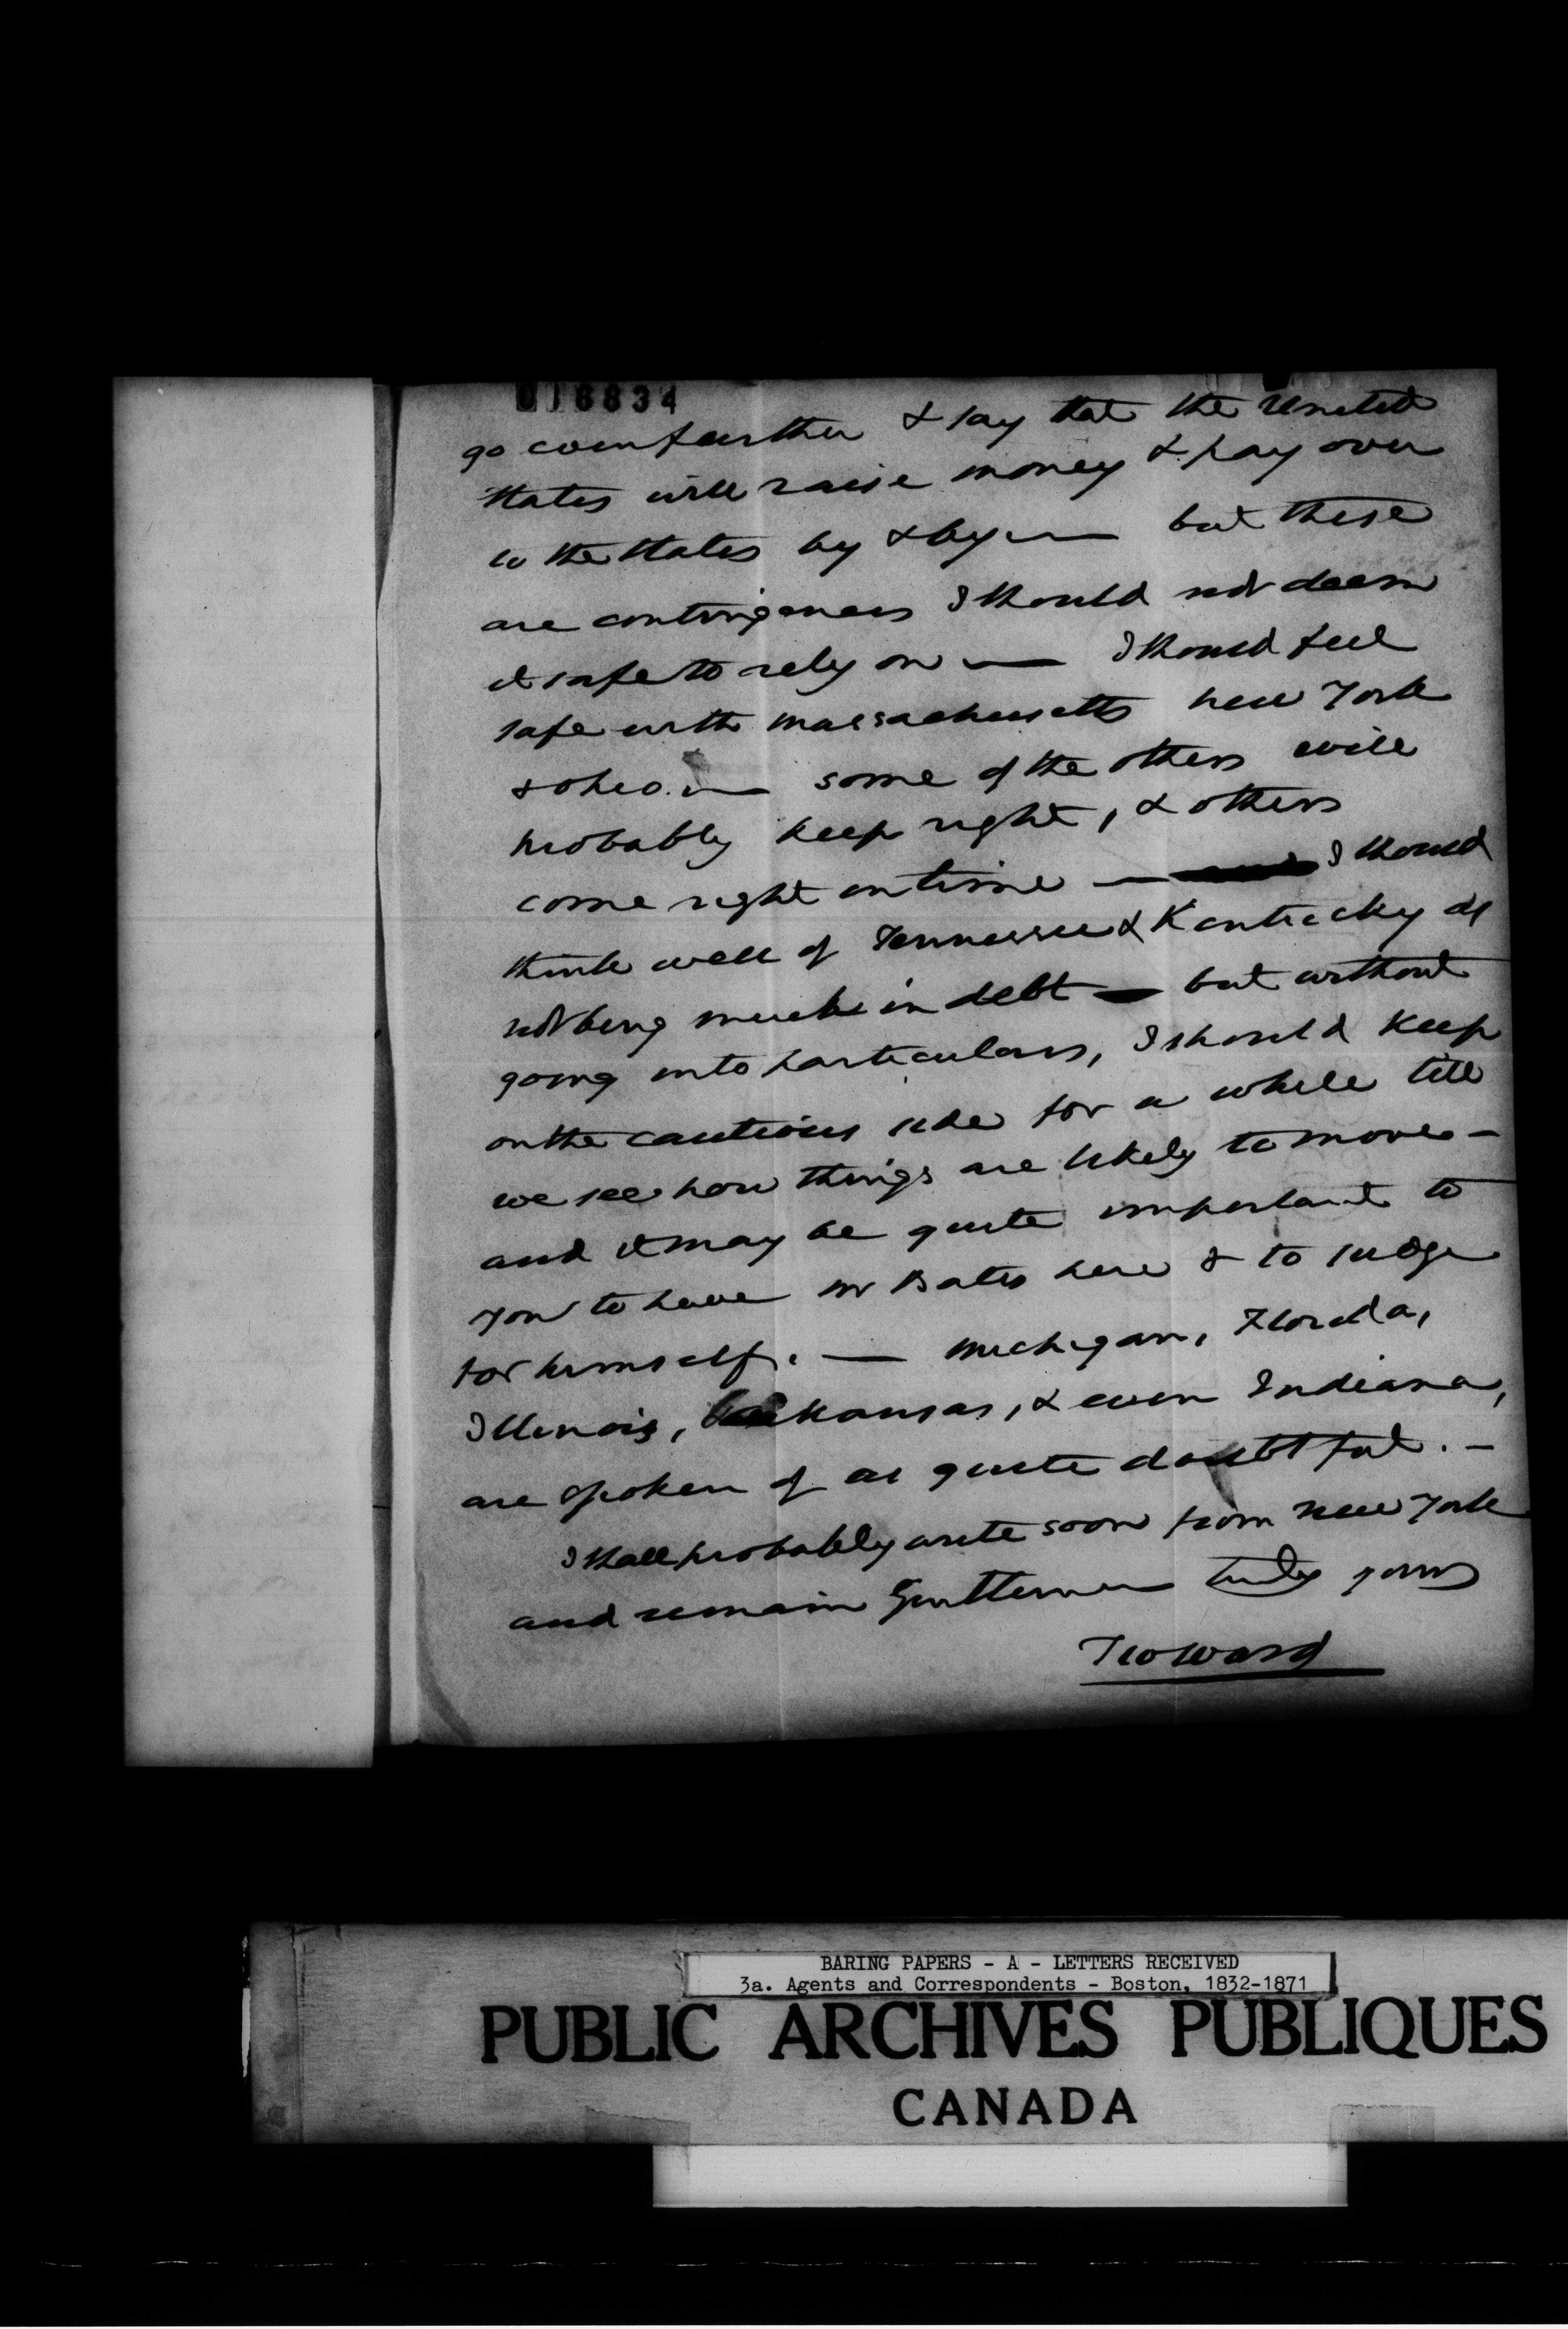 016834
go even further & say that the United
States will raise money & pay over
to the States by & by — but these
are contingences I should not deem
it safe to rely on — I should feel
safe with Massachusetts New York
& Ohio. — some of the others will
probably keep right, & others
come right in time — I should
think well of Tennessee & Kentucky as
not being much in debt — but without
going into particulars, I should keep
on the cautious side for a while till
we see how things are likely to move —
and it may be quite important to
you to have Mr Bates here & to judge
for himself. — Michigan, Florida,
Illinois, Arkansas, & even Indiana,
are spoken of as quite doubtful. —
I shall probably write soon from New York
and remain Gentlemen truly yours
T W Ward
BARING PAPERS - A - LETTERS RECEIVED
3a. Agents and Correspondents - Boston, 1832-1871
PUBLIC ARCHIVES PUBLIQUES
CANADA